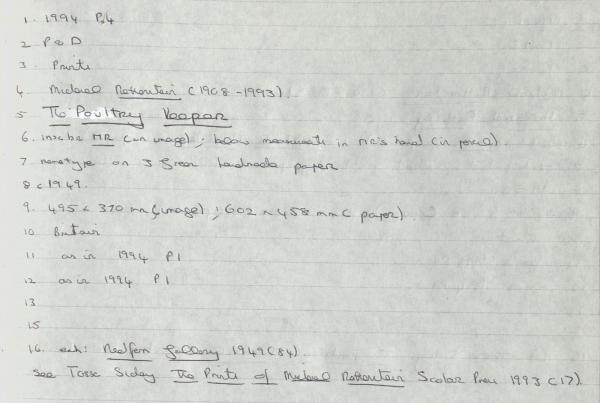 1. 1994 P.4
2 P & D
3. Prints
4. Michael Rothenstein (1908-1993).
5 The Poultry Keeper
6. inscribe MR (on image); below measurements in MR's hand (in pencil).
7 monotype on J Green handmade paper
8 c 1949.
9. 495 x 370 mm (image); 602 x 458 mm (paper)
10 Britain
11 as in 1994 P1
12 as in 1994 P1
13
15
16. exh: Redfern Gallery 1949 (84).
see Tessa Sidey The Prints of Michael Rothenstein Scolar Press 1993 (17)